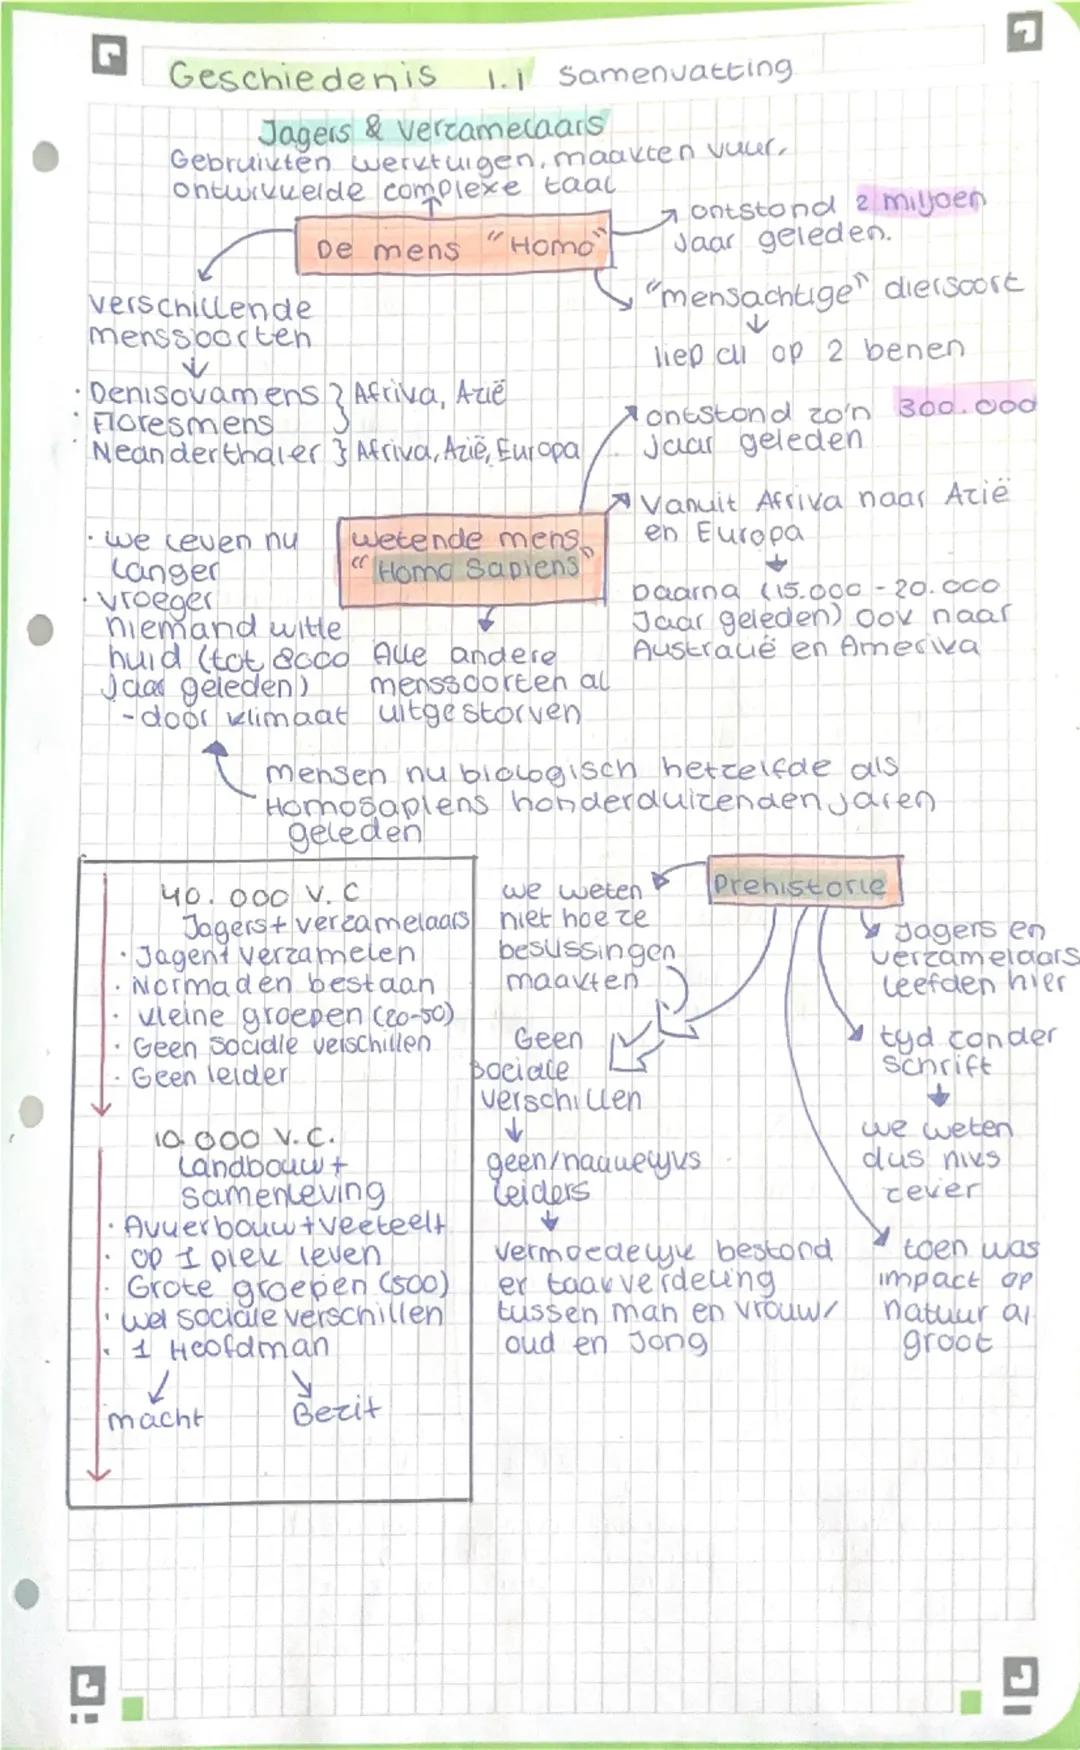 Geschiedenis 1.1 Samenvatting
Jagers & Verzamelaars
Gebruikten werktuigen, maakten vuur,
ontwikkelde complexe taal
De mens "Homo"
ontstond 2 miljoen
jaar geleden.
"mensachtige" diersoort
liep al op 2 benen
verschillende
menssoorten
· Denisovamens } Afrika, Azië
· Floresmens
· Neanderthaler } Afrika, Azië, Europa
ontstond zo'n 300.000
jaar geleden
wetende mens
"Homo Sapiens"
Vanuit Afrika naar Azië
en Europa
Daarna (15.000 - 20.000
Jaar geleden) ook naar
Australië en Amerika
· we leven nu
langer
· vroeger
niemand witte
huid (tot 8000
Jaar geleden)
- door klimaat
Alle andere
menssoorten al
uitgestorven
mensen nu biologisch hetzelfde als
Homosapiens honderduizenden jaren
geleden
40.000 V.C
Jagers + verzamelaars
· Jagen + verzamelen
· Normaden bestaan
· kleine groepen (20-50)
· Geen sociale verschillen
· Geen leider
10.000 V.C.
Landbouw +
samenleving
· Akkerbouw + veeteelt
· op 1 plek leven
· Grote groepen (500)
· wel sociale verschillen
· 1 Hoofdman
macht
Bezit
Prehistorie
we weten
niet hoe ze
beslissingen
maakten
Geen
sociale
verschillen
geen/nauwelijks
leiders
vermoedelijk bestond
er taakverdeling
tussen man en vrouw/
oud en jong
Jagers en
verzamelaars
leefden hier
tijd zonder
schrift
we weten
dus niks
zeker
toen was
impact op
natuur al
groot